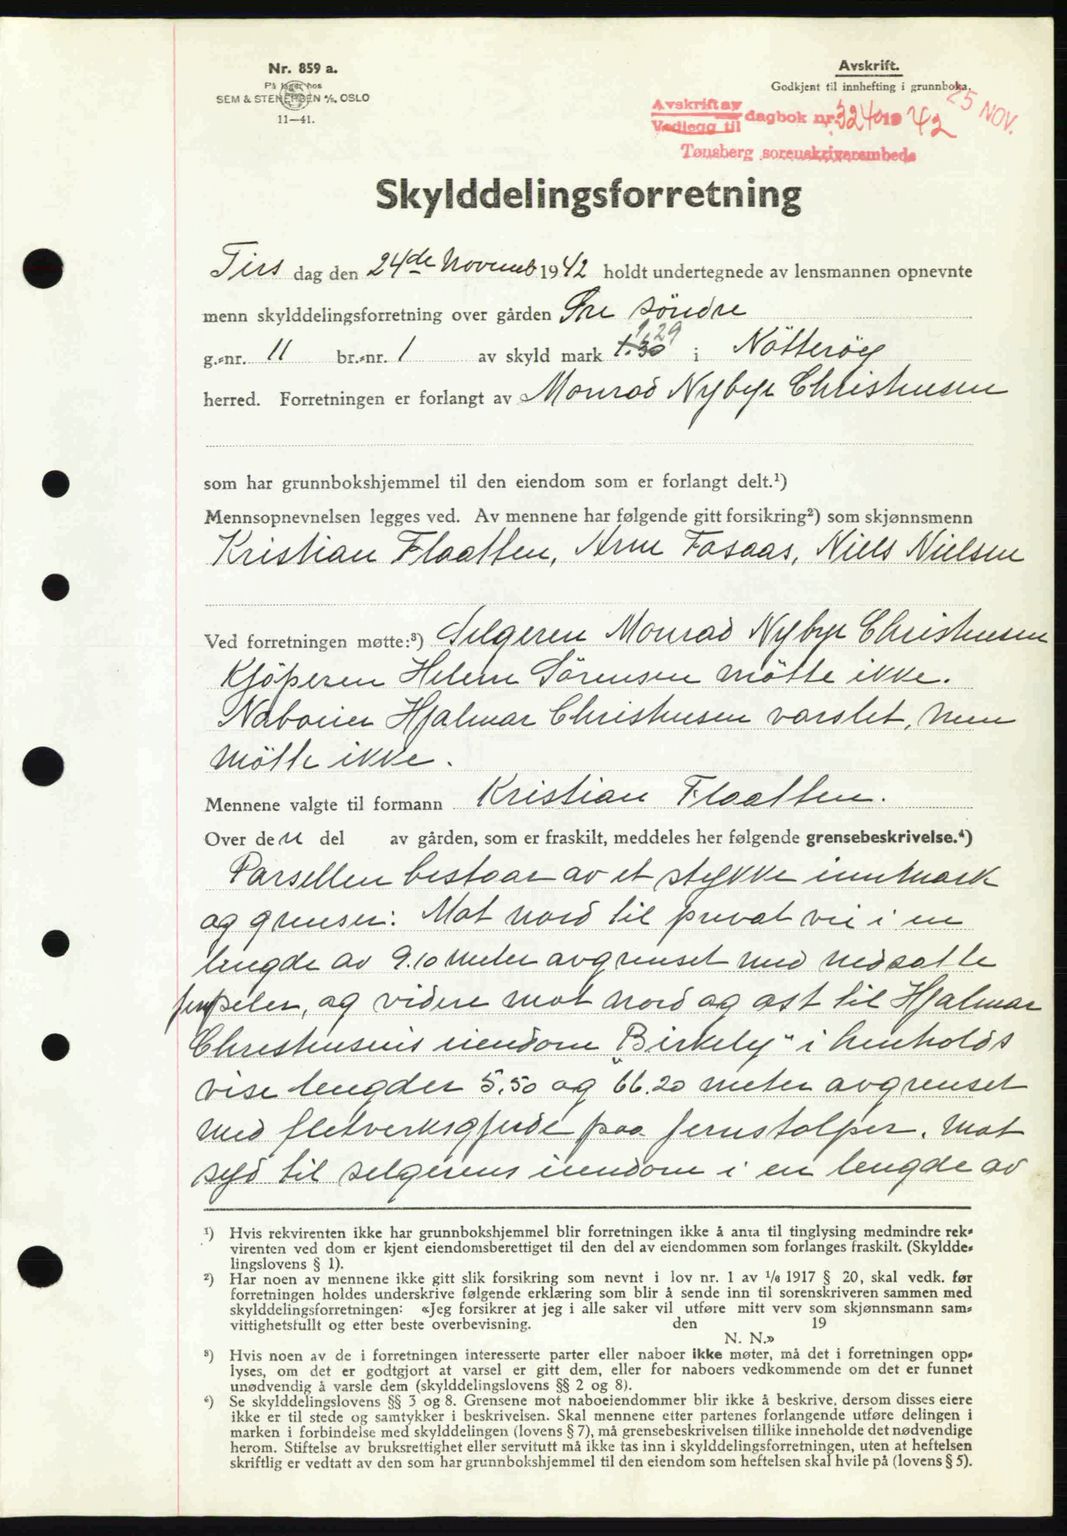 Nr. 859 a.
På lager hos
SEM & STENERSEN A/S, OSLO
11—41.
Avskrift.
Godkjent til innhefting i grunnboka.
25 NOV.
Avskrift av
Vedlegg til dagbok nr. 3240 19 42
Tønsberg sorenskriverembede
Skylddelingsforretning
Tirs dag den 24de Novemb 1942 holdt undertegnede av lensmannen opnevnte
menn skylddelingsforretning over gården Øre søndre
1.29
g.-nr. 11 br.-nr. 1 av skyld mark 1.30 i Nötteröy
herred. Forretningen er forlangt av Monrad Nybye Christensen
som har grunnbokshjemmel til den eiendom som er forlangt delt.¹)
Mennsopnevnelsen legges ved. Av mennene har følgende gitt forsikring²) som skjønnsmenn
Kristian Flaatten, Arne Fosaas, Niels Nielsen
Ved forretningen møtte:³) Selgeren Monrad Nybye Christensen
Kjöperen Helene Sörensen mötte ikke.
Naboeier Hjalmar Christensen varslet, men
mötte ikke.
Mennene valgte til formann Kristian Flaatten.
Over den del av gården, som er fraskilt, meddeles her følgende grensebeskrivelse.⁴)
Parsellen bestaar av et stykke innmark
og grenser: Mot nord til privat vei i en
lengde av 9.10 meter avgrenset med nedsatte
jernpeler, og videre mot nord og øst til Hjalmar
Christensens eiendom „Birkely" i henholds
vise lengder 5.50 og 66.20 meter avgrenset
med fletverksgjerde paa jernstolper. Mot
syd til selgerens eiendom i en lengde av
¹) Hvis rekvirenten ikke har grunnbokshjemmel blir forretningen ikke å anta til tinglysing medmindre rek-
virenten ved dom er kjent eiendomsberettiget til den del av eiendommen som forlanges fraskilt. (Skyldde-
lingslovens § 1).
²) Har noen av mennene ikke gitt slik forsikring som nevnt i lov nr. 1 av 1/6 1917 § 20, skal vedk. før
forretningen holdes underskrive følgende erklæring som blir å sende inn til sorenskriveren sammen med
skylddelingsforretningen: «Jeg forsikrer at jeg i alle saker vil utføre mitt verv som skjønnsmann sam-
vittighetsfullt og etter beste overbevisning. den 19
N. N.»
³) Hvis noen av de i forretningen interesserte parter eller naboer ikke møter, må det i forretningen opp-
lyses, om det er godtgjort at varsel er gitt dem, eller for naboers vedkommende om det er funnet
unødvendig å varsle dem (skylddelingslovens §§ 2 og 8).
⁴) Se skylddelingslovens §§ 3 og 8. Grensene mot naboeiendommer blir ikke å beskrive, dersom disses eiere
ikke er til stede og samtykker i beskrivelsen. Skal mennene etter partenes forlangende utføre delingen i
marken i forbindelse med skylddelingen (lovens § 7), må grensebeskrivelsen tillike inneholde det nødvendige
herom. Stiftelse av bruksrettighet eller servitutt må ikke tas inn i skylddelingsforretningen, uten at heftelsen
skriftlig er vedtatt av den som har grunnbokshjemmel til den eiendom som heftelsen skal hvile på (lovens § 5).